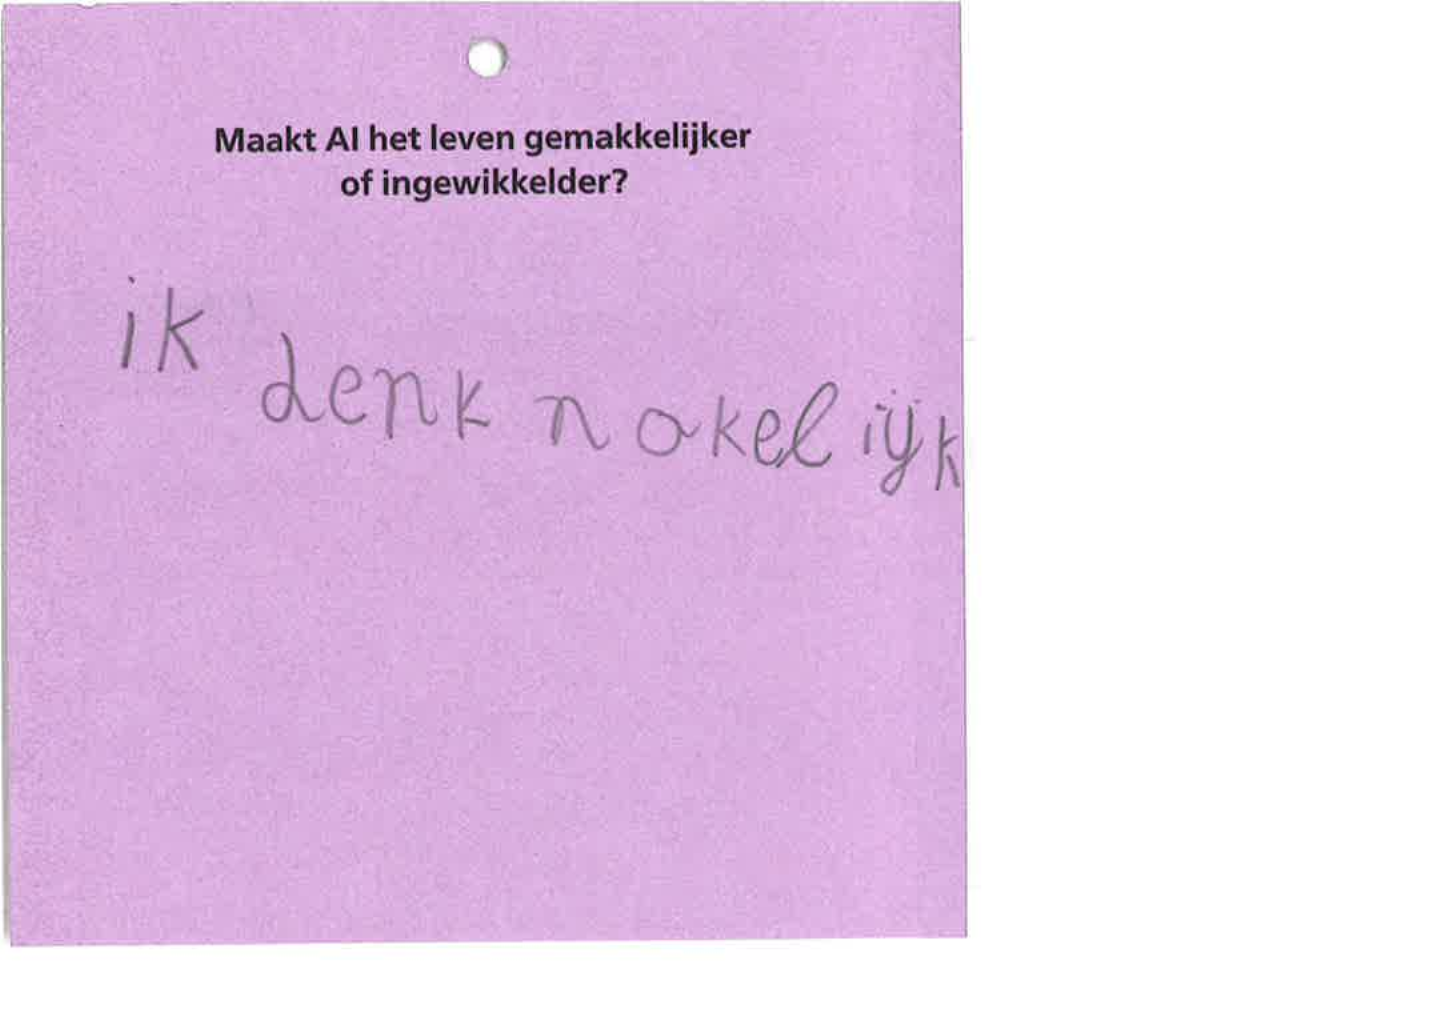 Maakt AI het leven gemakkelijker
of ingewikkelder?
ik denk nakelijk